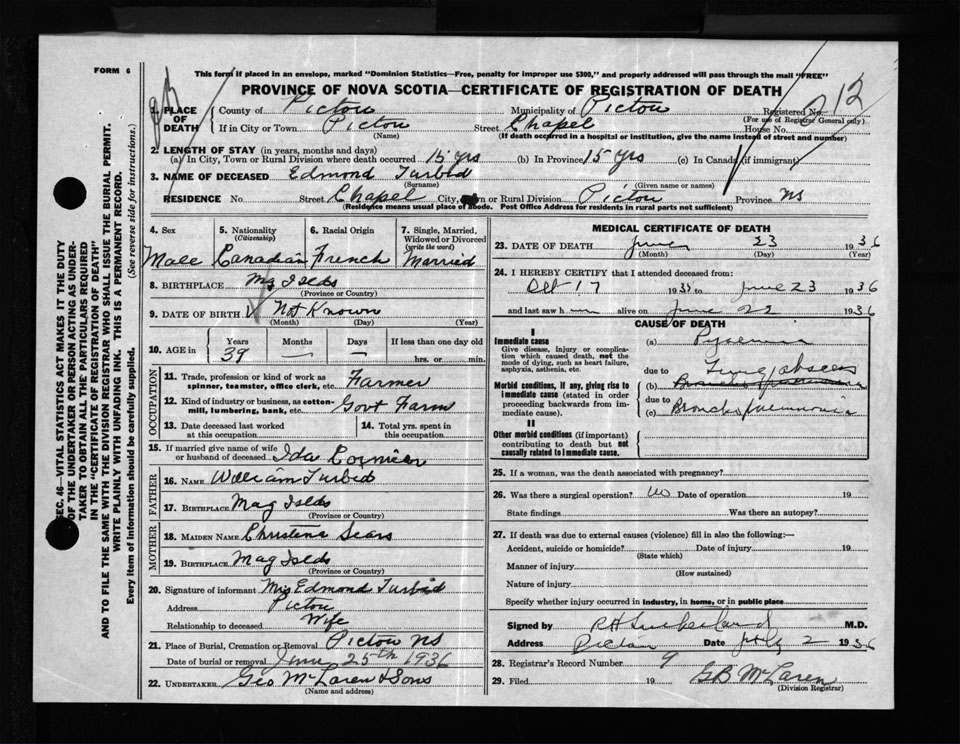 FORM 6
This form if placed in an envelope, marked "Dominion Statistics—Free, penalty for improper use $300," and properly addressed will pass through the mail "FREE"
PROVINCE OF NOVA SCOTIA—CERTIFICATE OF REGISTRATION OF DEATH
1. PLACE OF DEATH
County of Pictou Municipality of Pictou Registered No. 212
(For use of Registrar General only)
If in City or Town Pictou Street Chapel House No.
(Name) (If death occurred in a hospital or institution, give the name instead of street and number)
2. LENGTH OF STAY (in years, months and days)
(a) In City, Town or Rural Division where death occurred 15 yrs (b) In Province 15 yrs (c) In Canada (if immigrant)
3. NAME OF DECEASED Edmond Turbid
(Surname) (Given name or names)
RESIDENCE No Street Chapel City, Town or Rural Division Pictou Province NS
(Residence means usual place of abode. Post Office Address for residents in rural parts not sufficient)
4. Sex 5. Nationality (Citizenship) 6. Racial Origin 7. Single, Married, Widowed or Divorced (write the word)
Male Canadian French Married
8. BIRTHPLACE Mg Islds
(Province or Country)
9. DATE OF BIRTH Not Known
(Month) (Day) (Year)
10. AGE in Years Months Days If less than one day old
39 — — hrs. or min.
OCCUPATION
11. Trade, profession or kind of work as spinner, teamster, office clerk, etc. Farmer
12. Kind of industry or business, as cotton-mill, lumbering, bank, etc. Govt Farm
13. Date deceased last worked at this occupation 14. Total yrs. spent in this occupation
15. If married give name of wife or husband of deceased Ida Cormier
FATHER
16. NAME William Turbid
17. BIRTHPLACE Mag Islds
(Province or Country)
MOTHER
18. MAIDEN NAME Christena Sears
19. BIRTHPLACE Mag Islds
(Province or Country)
20. Signature of informant Mrs Edmond Turbid
Address Pictou
Relationship to deceased Wife
21. Place of Burial, Cremation or Removal Pictou NS
Date of burial or removal June 25th 1936
22. UNDERTAKER Geo McLaren & Sons
(Name and address)
MEDICAL CERTIFICATE OF DEATH
23. DATE OF DEATH June 23 1936
(Month) (Day) (Year)
24. I HEREBY CERTIFY that I attended deceased from:
Oct 17 1935 to June 23 1936
and last saw him alive on June 22 1936
CAUSE OF DEATH
I
Immediate cause
Give disease, injury or complication which caused death, not the mode of dying, such as heart failure, asphyxia, asthenia, etc.
(a) Pyaemia
due to Lung abscess
Morbid conditions, if any, giving rise to immediate cause (stated in order proceeding backwards from immediate cause).
(b) Broncho pneumonia
due to
(c) Broncho pneumonia
II
Other morbid conditions (if important) contributing to death but not causally related to immediate cause.
25. If a woman, was the death associated with pregnancy?
26. Was there a surgical operation? no Date of operation 19
State findings Was there an autopsy?
27. If death was due to external causes (violence) fill in also the following:—
Accident, suicide or homicide? Date of injury 19
(State which)
Manner of injury
(How sustained)
Nature of injury
Specify whether injury occurred in industry, in home, or in public place
Signed by RH Sutherland M.D.
Address Pictou Date July 2 1936
28. Registrar's Record Number 9
29. Filed 19 GB McLaren
(Division Registrar)
SEC. 46—VITAL STATISTICS ACT MAKES IT THE DUTY OF THE UNDERTAKER OR PERSON ACTING AS UNDERTAKER TO OBTAIN ALL THE PARTICULARS REQUIRED IN THE "CERTIFICATE OF REGISTRATION OF DEATH"
AND TO FILE THE SAME WITH THE DIVISION REGISTRAR WHO SHALL ISSUE THE BURIAL PERMIT.
WRITE PLAINLY WITH UNFADING INK. THIS IS A PERMANENT RECORD.
Every item of information should be carefully supplied. (See reverse side for instructions.)